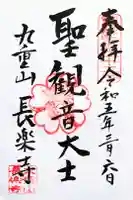 奉拝 令和五年二月六日
聖観音大士
九重山 長楽寺